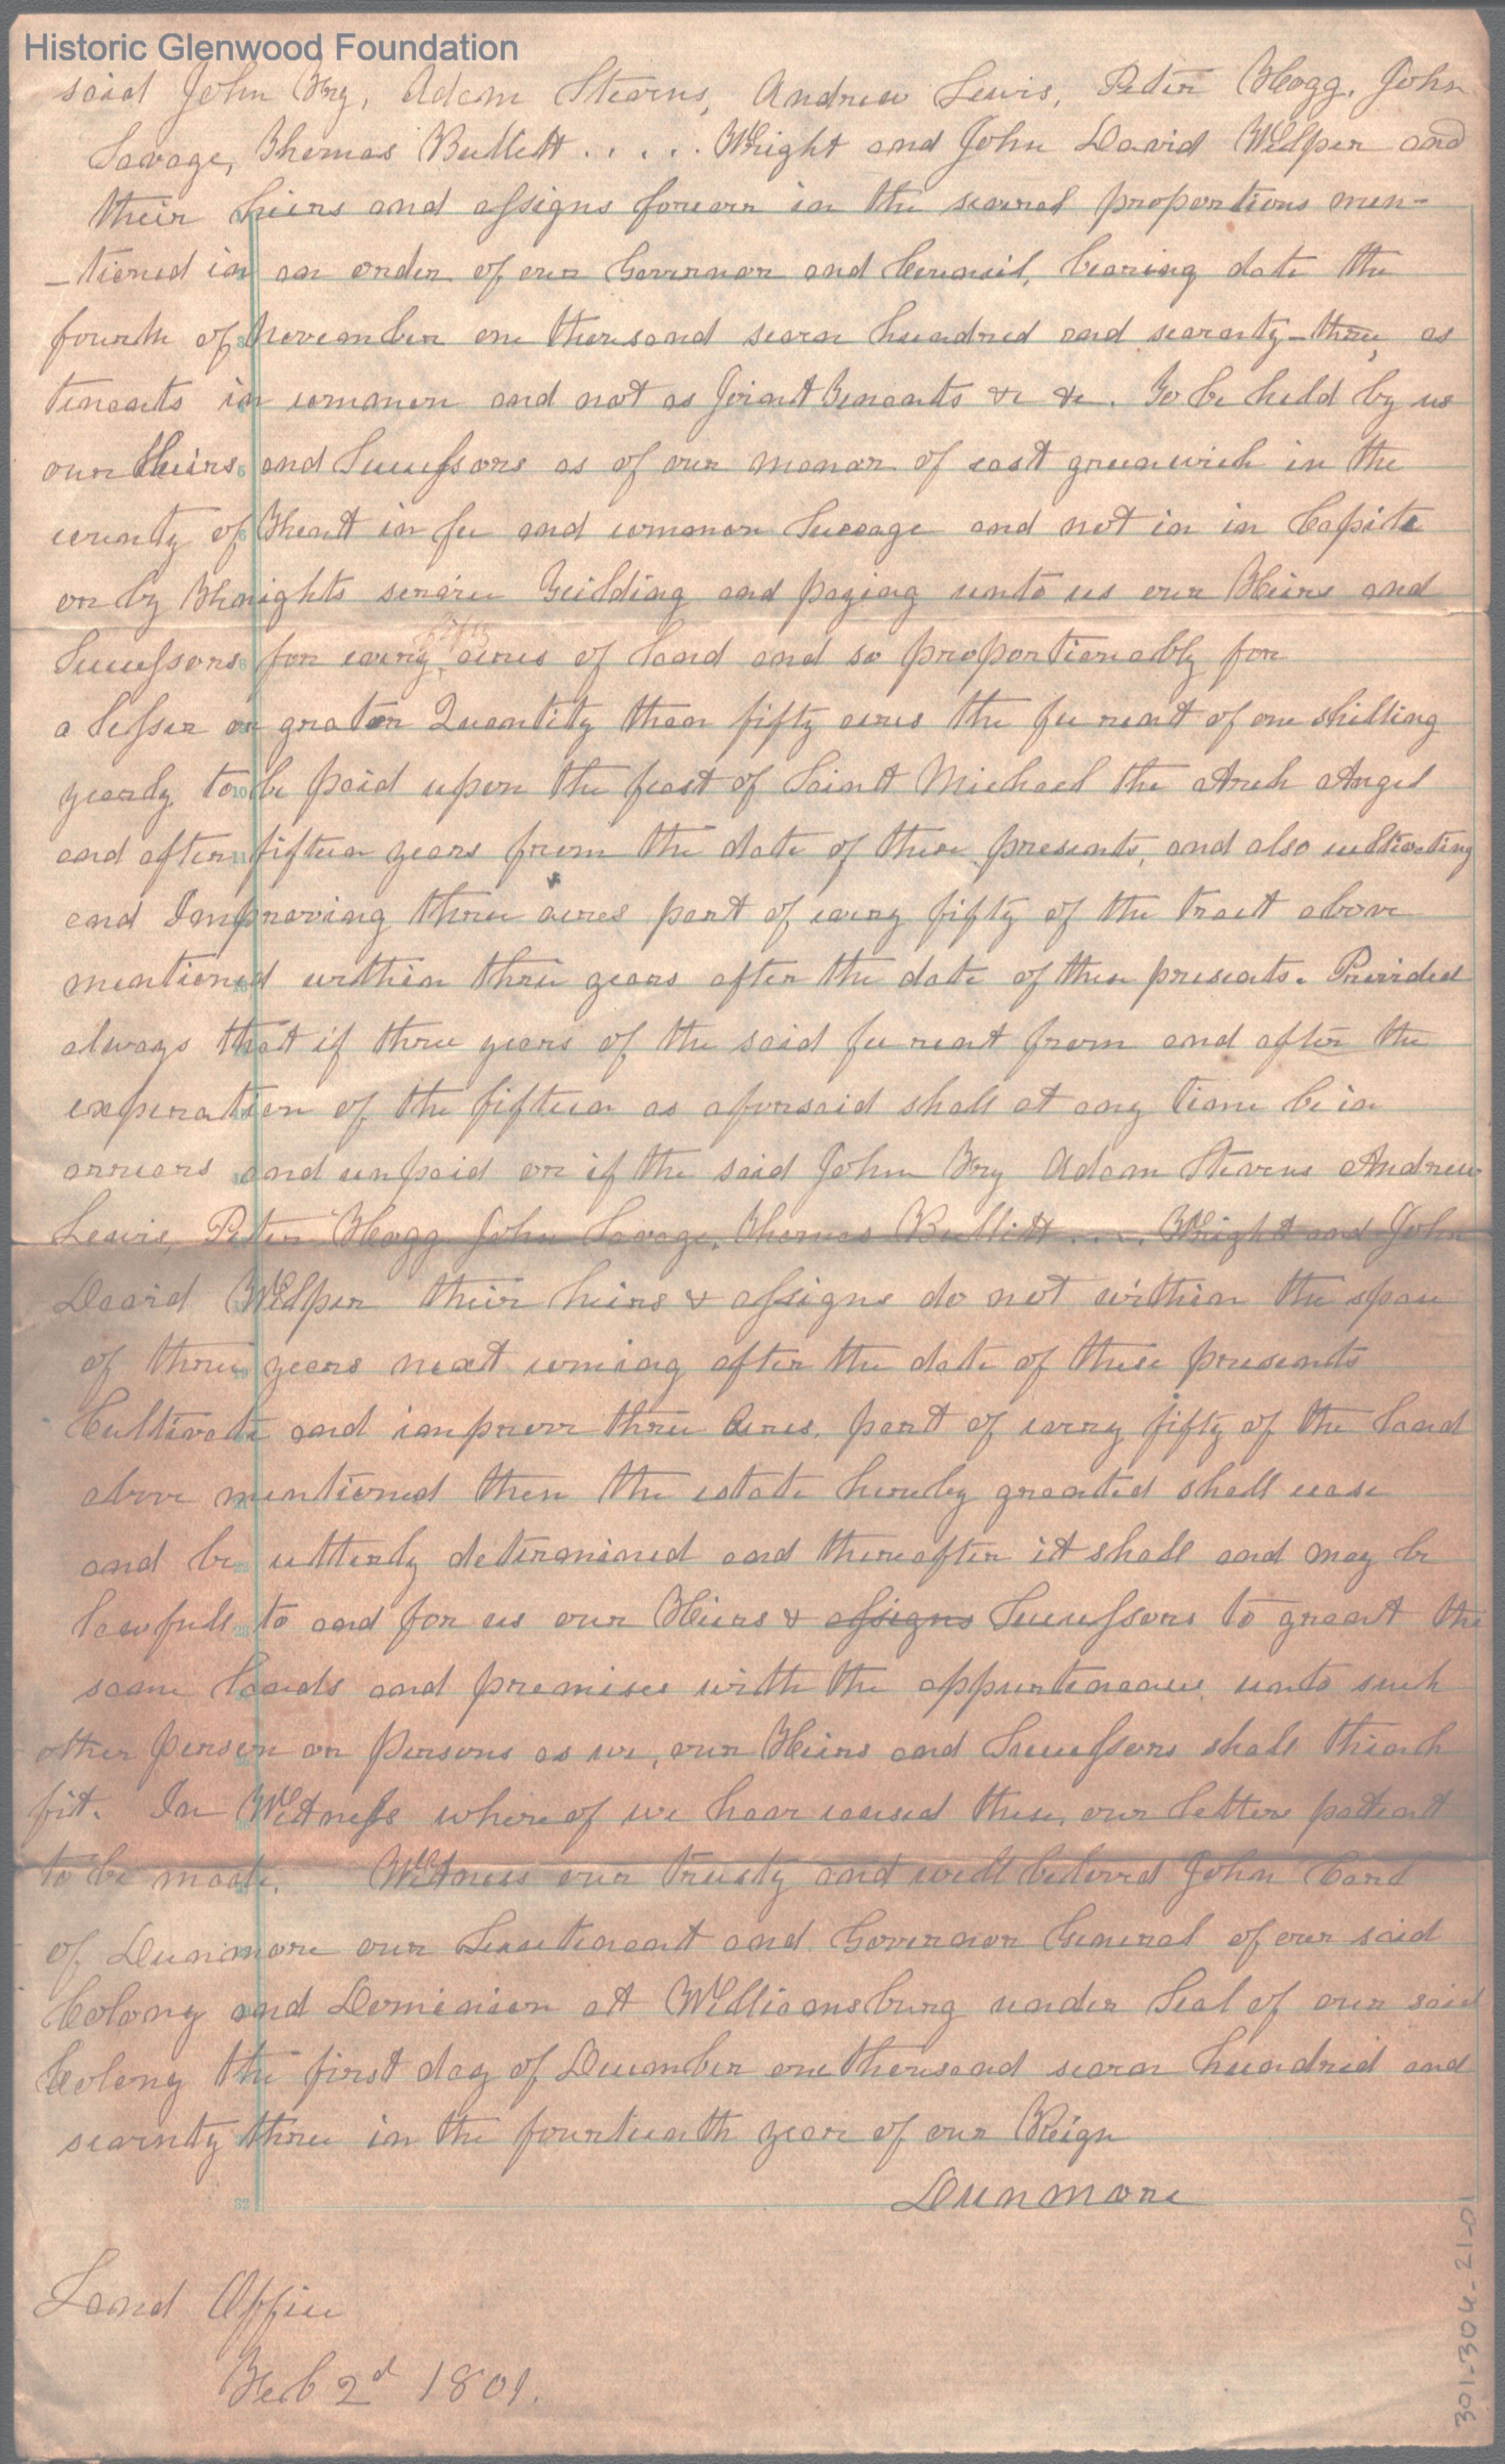 Historic Glenwood Foundation
said John Fry, Adam Stevens, Andrew Lewis, Peter Hogg, John
Savage, Thomas Bullett ..... Wright and John David Wilper and
their heirs and assigns forever in the several proportions men-
-tioned in an order of our Governor and Council, bearing date the
fourth of November one thousand seven hundred and seventy-three, as
tenants in common and not as Joint Tenants &c &c. To be held by us
our Heirs and Successors as of our manor of east greenwich in the
county of Kent in fee and common Soccage and not in in Capite
or by Knights service Yeilding and paying unto us our Heirs and
Successors for every fifty acres of land and so proportionably for
a lesser or grater Quantity than fifty acres the fee rent of one shilling
yearly to be paid upon the feast of Saint Michael the Arch Angel
and after fifteen years from the date of these presents, and also cultivating
and Improving three acres part of every fifty of the tract above
mentioned within three years after the date of these presents. Provided
always that if three years of the said fee rent from and after the
experation of the fifteen as aforsaid shall at any time be in
arrears and unpaid or if the said John Fry Adam Stevens Andrew
Lewis, Peter Hogg John Savage, Thomas Bullitt .... Wright and John
David Wilper their heirs & assigns do not within the space
of three years next coming after the date of these presents
Cultivate and improve three Acres, part of every fifty of the land
above mentioned then the estate hereby granted shall cease
and be utterly determined and thereafter it shall and may be
lawfull to and for us our Heirs & assigns Successors to grant the
same lands and premises with the appurtenances unto such
other person or persons as we, our Heirs and Successors shall think
fit. In Witness where of we have caused these, our letters patent
to be made. Witness our trusty and well beloved John Earl
of Dunmore our Lieutenant and Governor General of our said
Colony and Dominion at Williamsburg under Seal of our said
Colony the first day of December one thousand seven hundred and
seventy three in the fourteenth year of our Reign
Dunmore
Land Office
Feb 2d 1801.
301-304-21-01